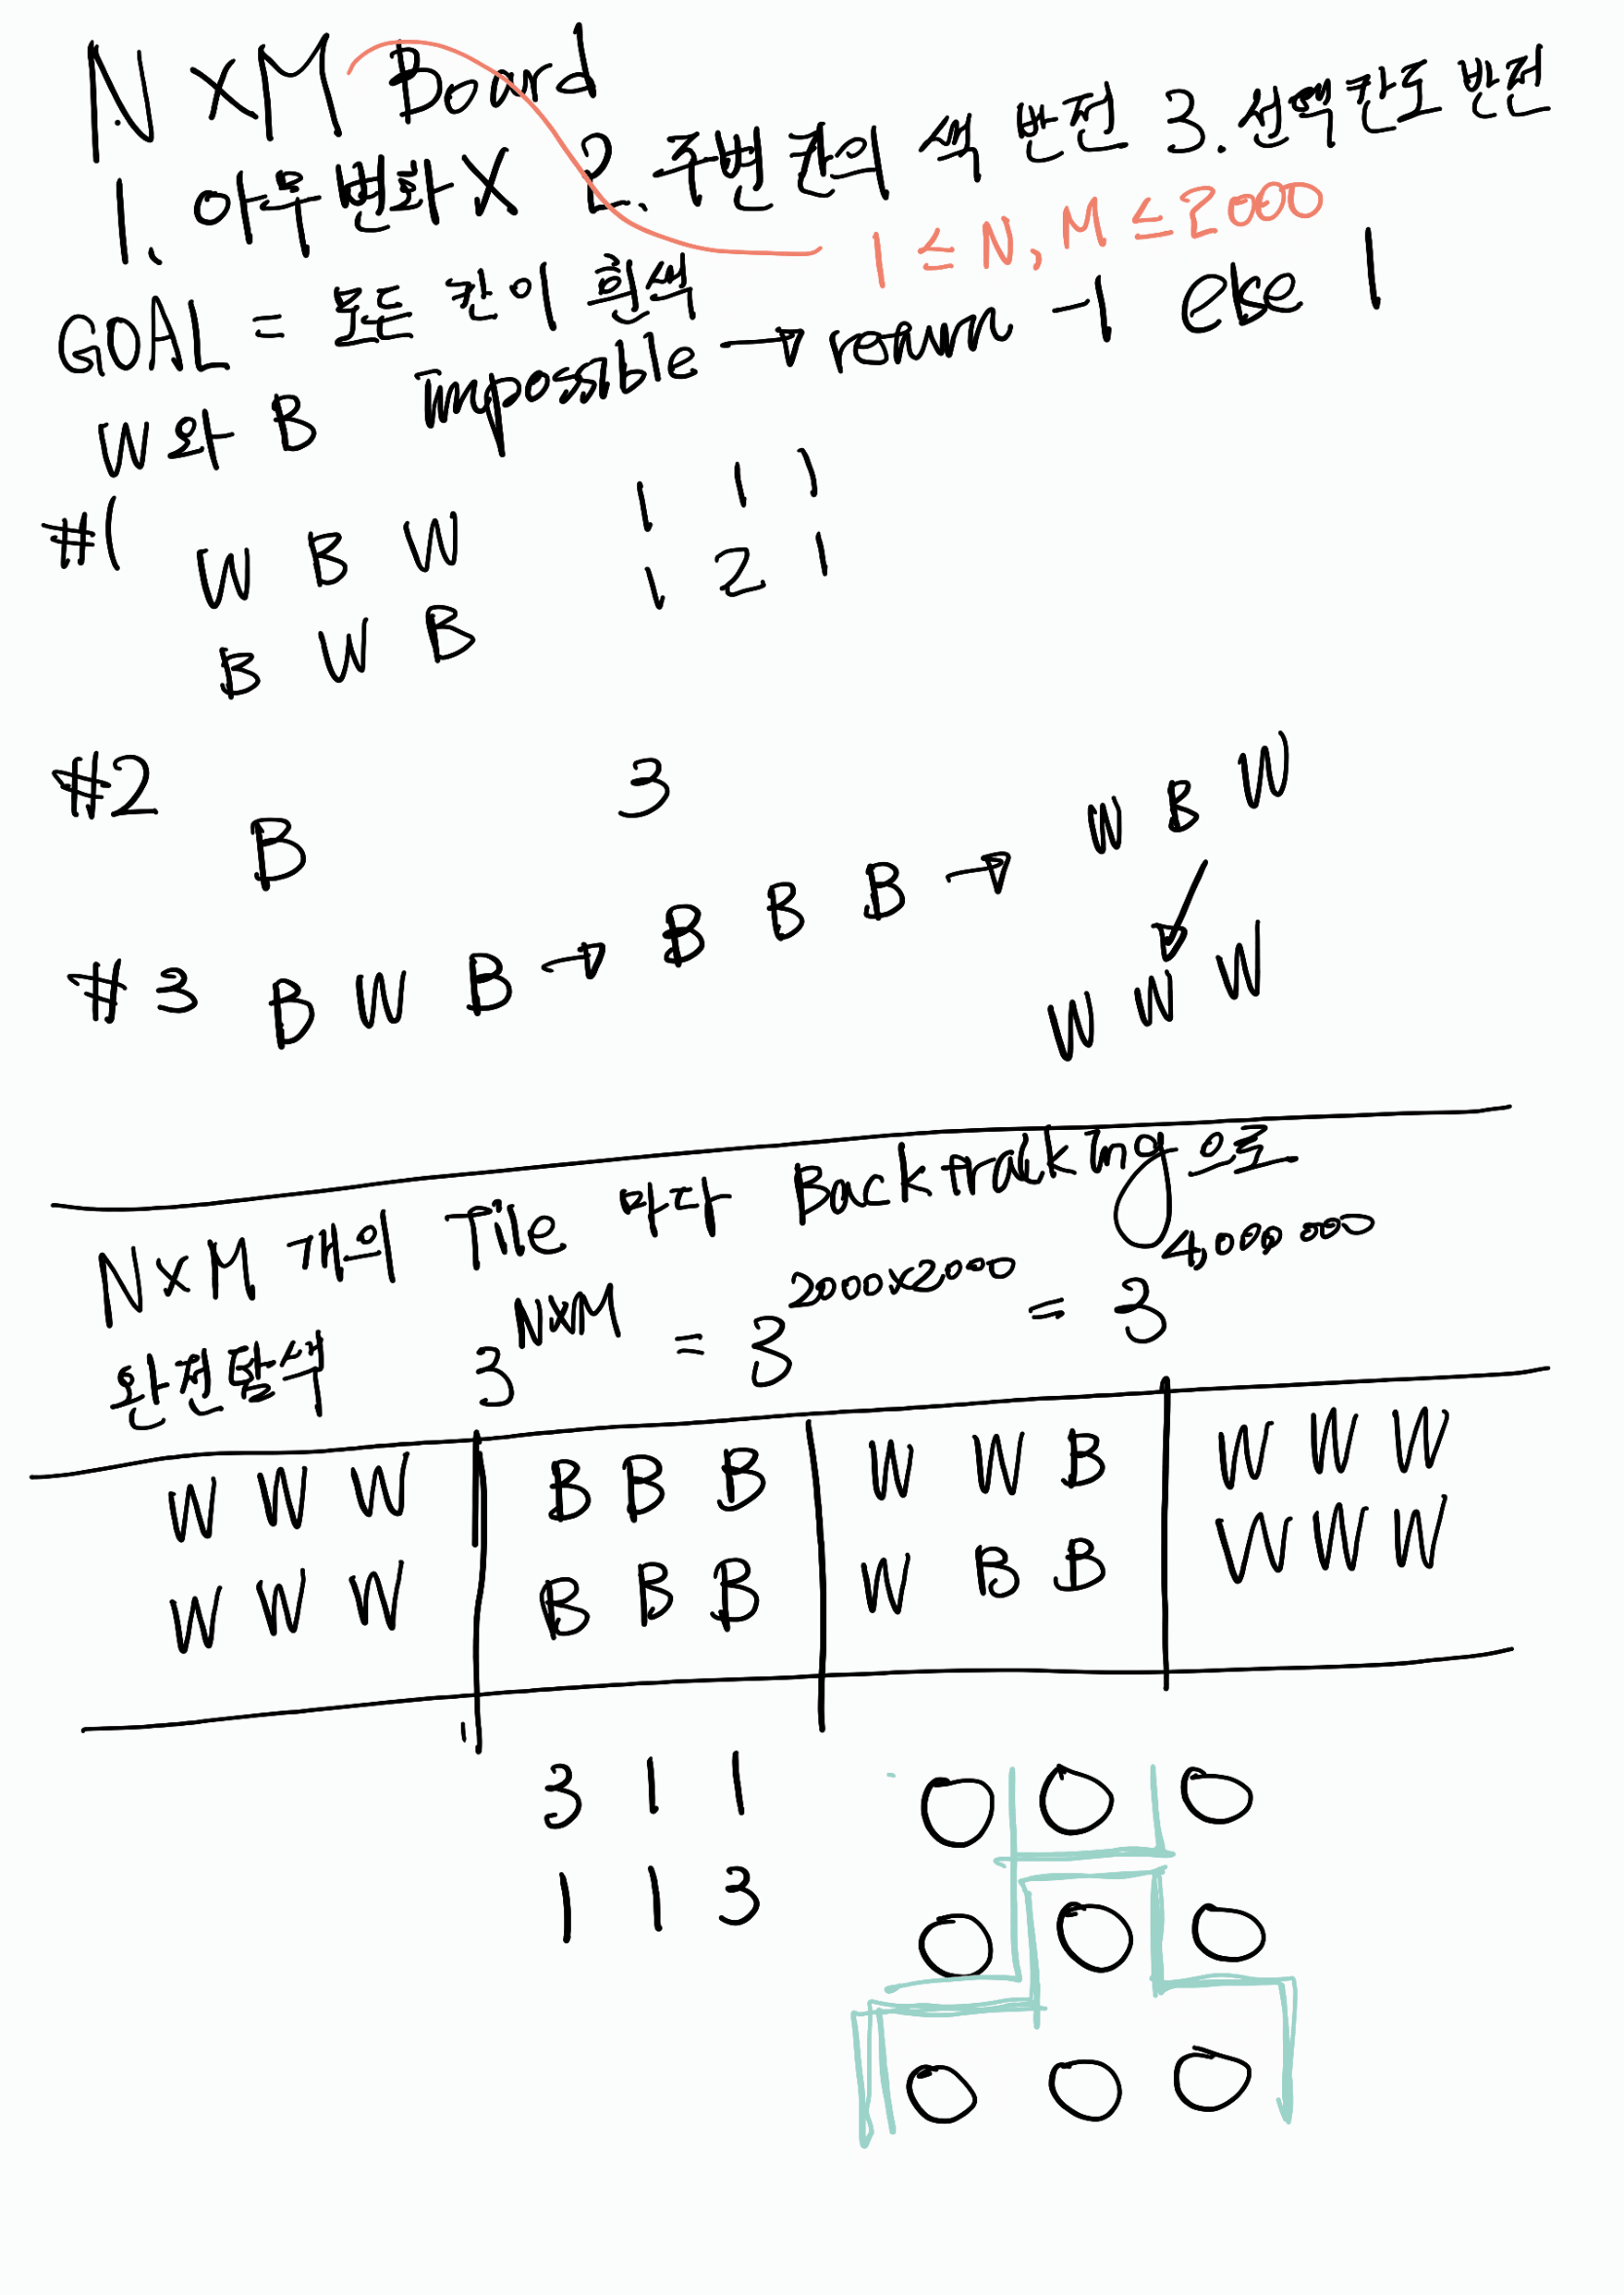 N×M Board
1. 아무 변화 X 2. 주변 칸의 색 반전 3. 선택칸도 반전
1 ≤ N, M ≤ 2000
GOAL = 모든 칸이 흰색
W와 B impossible → return -1 else 1
#1
W B W 1 1 1
B W B 1 2 1
#2
B 3
#3 B W B → B B B → W B W
W W W
N×M 개의 Tile 마다 Backtracking으로
완전탐색 3^N×M = 3^2000×2000 = 3^4,000,000
W W W B B B W W B W W W
W W W B B B W B B W W W
3 1 1
1 1 3